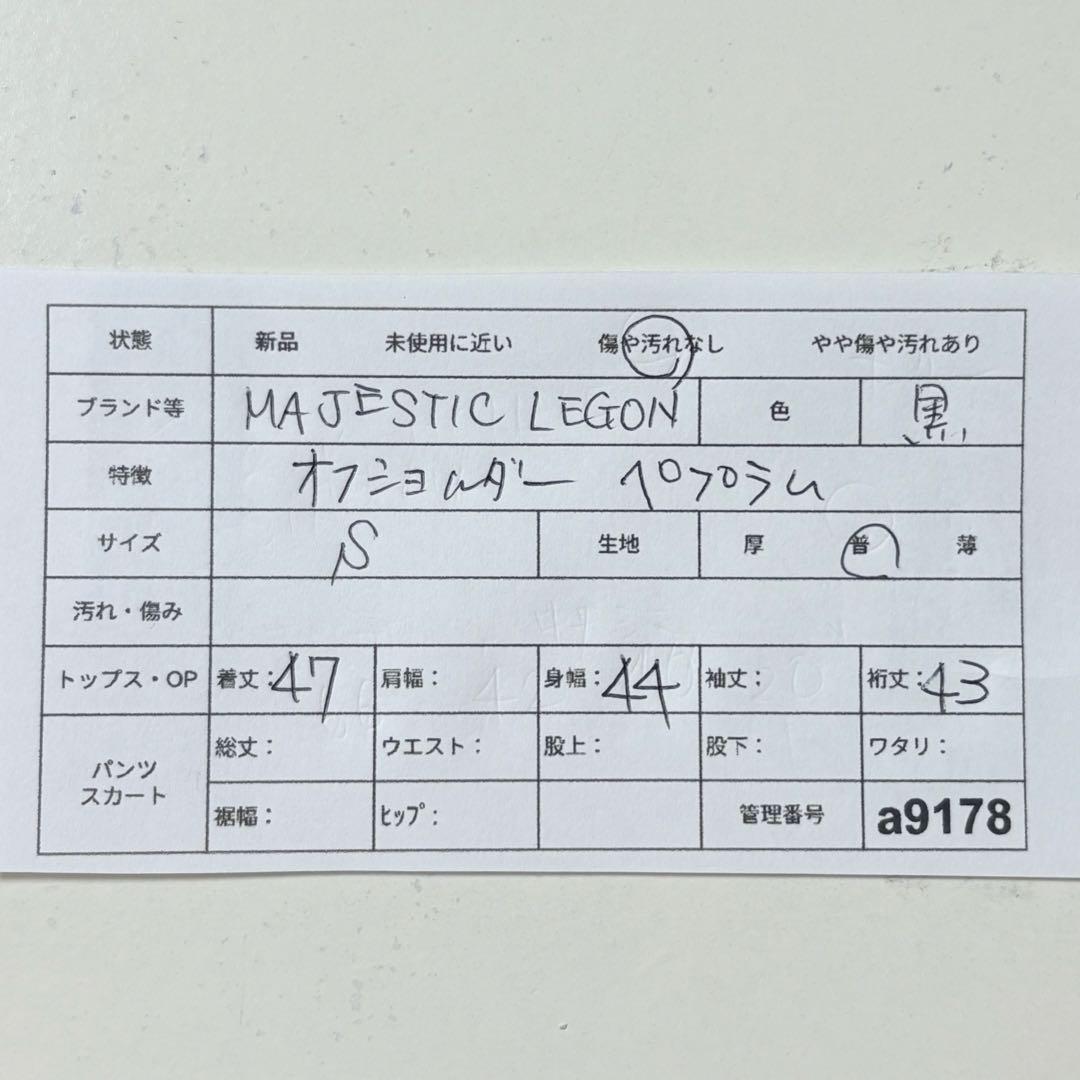 状態 新品 未使用に近い 傷や汚れなし やや傷や汚れあり
ブランド等 MAJESTIC LEGON 色 黒
特徴 オフショルダー ペプラム
サイズ S 生地 厚 普 薄
汚れ・傷み
トップス・OP 着丈：47 肩幅： 身幅：44 袖丈： 裄丈：43
パンツ スカート 総丈： ウエスト： 股上： 股下： ワタリ：
裾幅： ヒップ： 管理番号 a9178